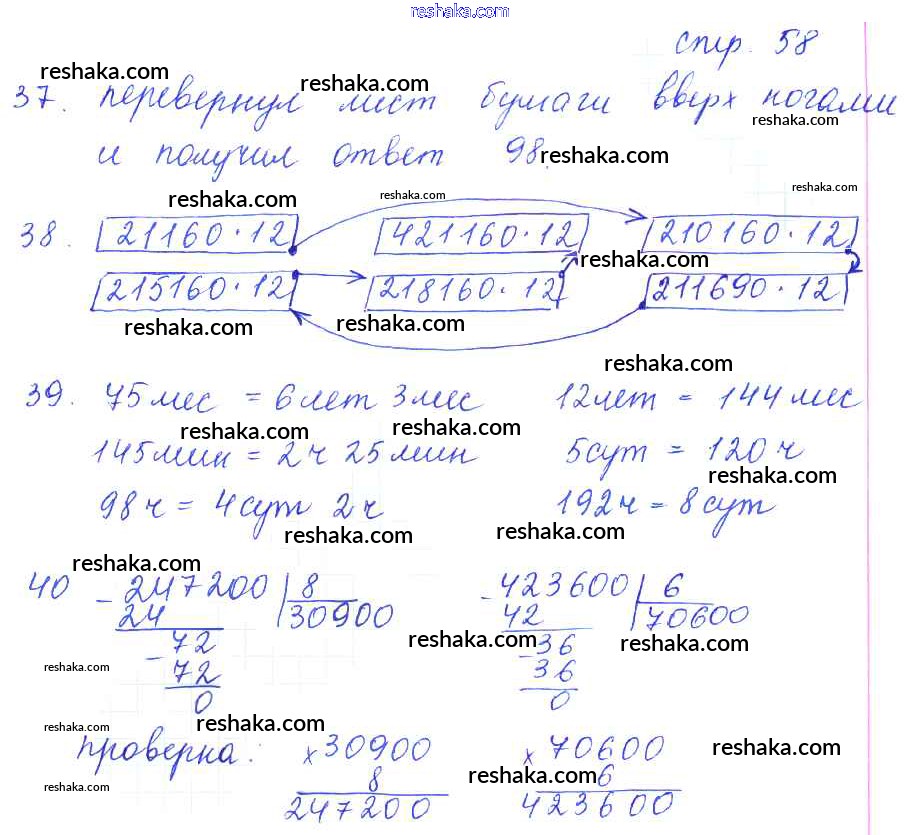 reshaka.com
стр. 58
reshaka.com
reshaka.com
37. перевернул лист бумаги вверх ногами
reshaka.com
и получил ответ 98.
reshaka.com
reshaka.com
reshaka.com
reshaka.com
38. 21160·12 421160·12 210160·12
reshaka.com
215160·12 218160·12 211690·12
reshaka.com
reshaka.com
reshaka.com
39. 75 мес = 6 лет 3 мес 12 лет = 144 мес
reshaka.com
reshaka.com
145 мин = 2 ч 25 мин 5 сут = 120 ч
reshaka.com
98 ч = 4 сут 2 ч 192 ч = 8 сут
reshaka.com
reshaka.com
reshaka.com
40 - 247200 8 - 423600 6
24 30900 42 70600
reshaka.com
reshaka.com
- 72 - 36
72 36
reshaka.com
0 0
reshaka.com
reshaka.com
проверка: × 30900 × 70600
reshaka.com
reshaka.com
8 6
reshaka.com
247200 423600